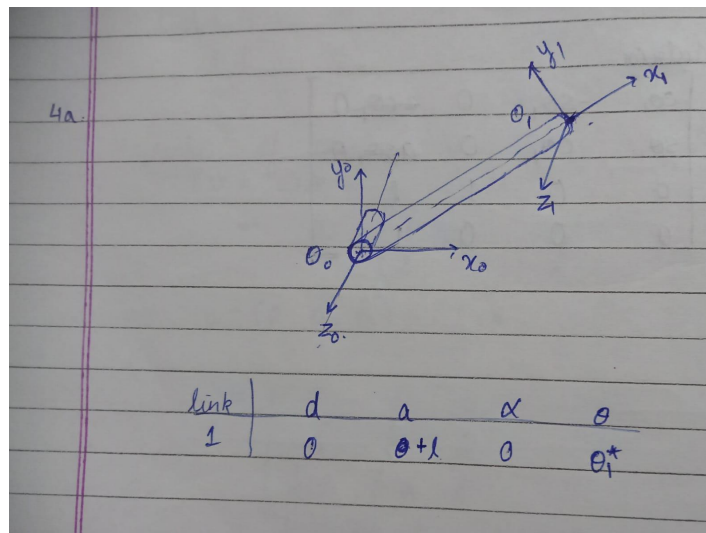 4a.
y1
x1
θ1
z1
y0
θ0
x0
z0.
link d a α θ
1 0 +l 0 θ1*